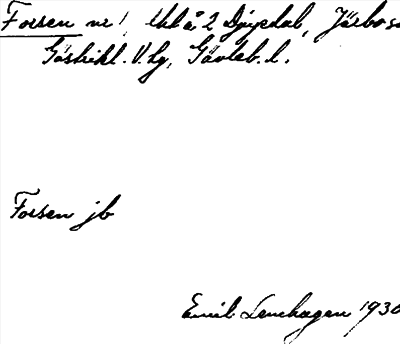 Forsen nr 1, Ekb å 2 Djupdal, Järbo sn
Gästrikl. V. hg, Gävleb. l.
Forsen jb
Emil Lenhagen 1930